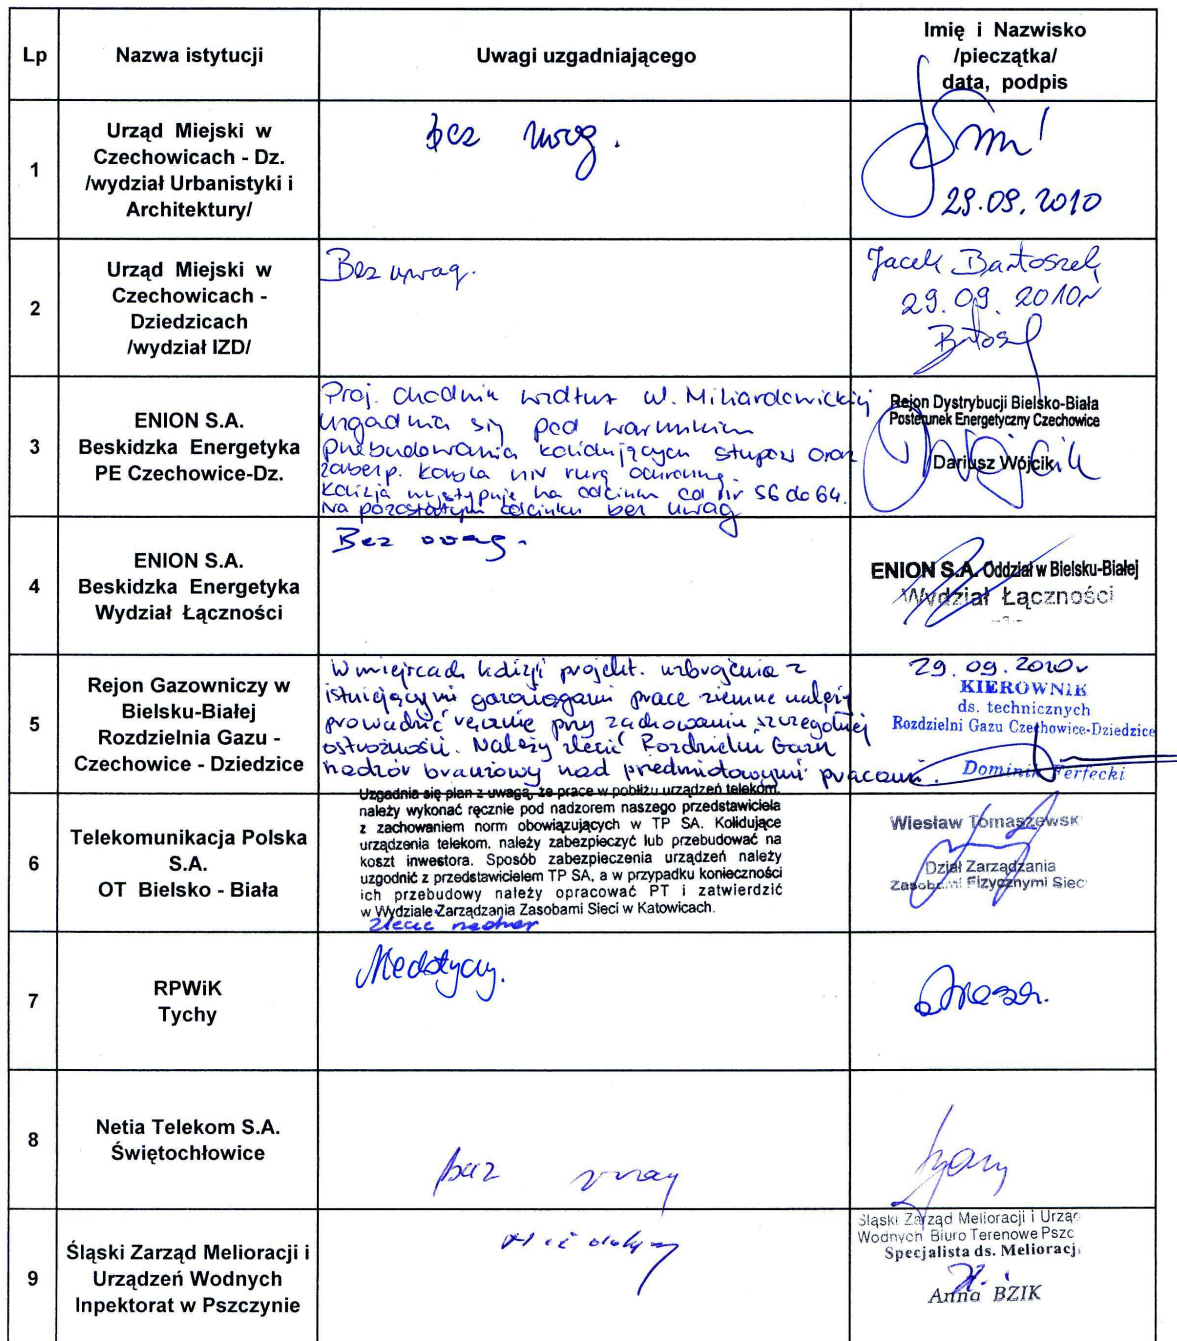 Lp
Nazwa istytucji
Uwagi uzgadniającego
Imię i Nazwisko
/pieczątka/
data, podpis
1
Urząd Miejski w
Czechowicach - Dz.
/wydział Urbanistyki i
Architektury/
bez uwag.
29.09.2010
2
Urząd Miejski w
Czechowicach -
Dziedzicach
/wydział IZD/
Bez uwag.
Jacek Bartoszek
29.09.2010r
3
ENION S.A.
Beskidzka Energetyka
PE Czechowice-Dz.
Proj. chodnik wzdłuż ul. Miliardowickiej
uzgadnia się pod warunkiem
przebudowania kolidujących słupów oraz
zabezp. kabla nN rurą ochronną.
Kolizja występuje na odcinku od nr 56 do 64.
Na pozostałym odcinku bez uwag
Rejon Dystrybucji Bielsko-Biała
Posterunek Energetyczny Czechowice
Dariusz Wójcik
4
ENION S.A.
Beskidzka Energetyka
Wydział Łączności
Bez uwag.
ENION S.A. Oddział w Bielsku-Białej
Wydział Łączności
5
Rejon Gazowniczy w
Bielsku-Białej
Rozdzielnia Gazu -
Czechowice - Dziedzice
W miejscach kolizji projekt. uzbrojenia z
istniejącymi gazociągami prace ziemne należy
prowadzić ręcznie przy zachowaniu szczególnej
ostrożności. Należy zlecić Rozdzielni Gazu
nadzór branżowy nad przedmiotowymi pracami.
29.09.2010r
KIEROWNIK
ds. technicznych
Rozdzielni Gazu Czechowice-Dziedzice
Dominik Ferfecki
6
Telekomunikacja Polska
S.A.
OT Bielsko - Biała
Uzgadnia się plan z uwagą, że prace w pobliżu urządzeń telekom.
należy wykonać ręcznie pod nadzorem naszego przedstawiciela
z zachowaniem norm obowiązujących w TP SA. Kolidujące
urządzenia telekom. należy zabezpieczyć lub przebudować na
koszt inwestora. Sposób zabezpieczenia urządzeń należy
uzgodnić z przedstawicielem TP SA, a w przypadku konieczności
ich przebudowy należy opracować PT i zatwierdzić
w Wydziale Zarządzania Zasobami Sieci w Katowicach.
Zlecić nadzór
Wiesław Tomaszewsk
Dział Zarządzania
Zasobami Fizycznymi Siec
7
RPWiK
Tychy
Nie dotyczy.
8
Netia Telekom S.A.
Świętochłowice
bez uwag
9
Śląski Zarząd Melioracji i
Urządzeń Wodnych
Inpektorat w Pszczynie
nie dotyczy
Śląski Zarząd Melioracji i Urząd
Wodnych Biuro Terenowe Pszc
Specjalista ds. Melioracji
Anna BZIK